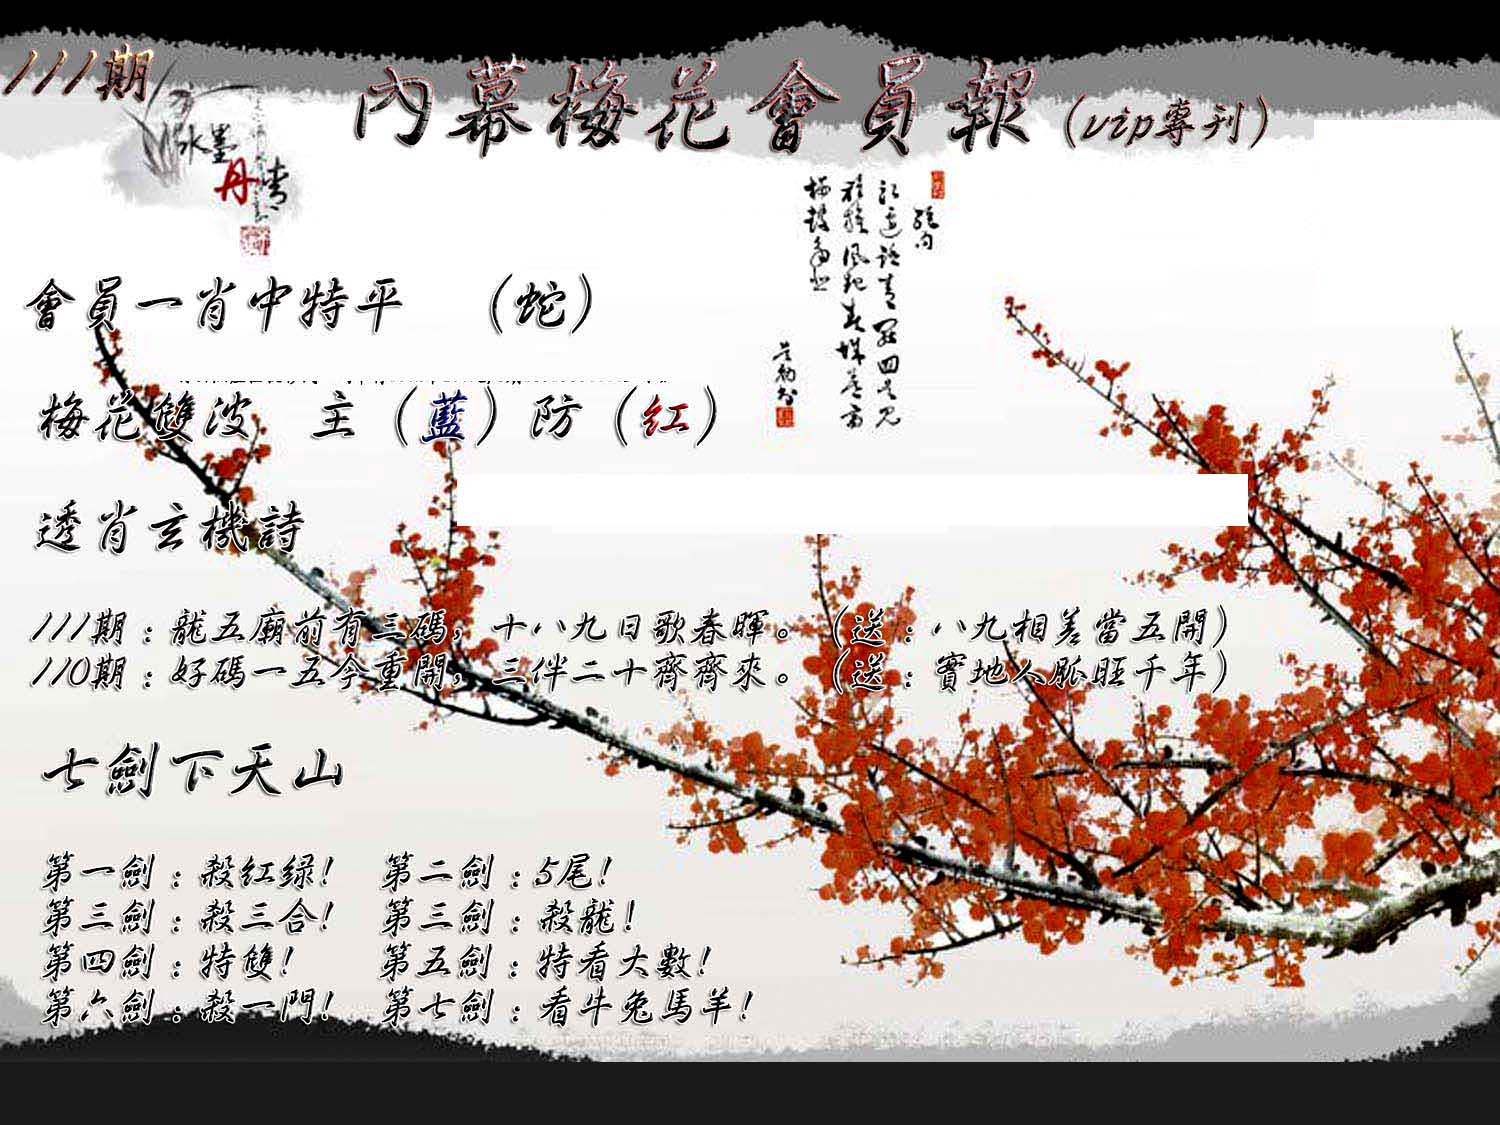 111期
內幕梅花會員報（vip專刊）
水墨
丹青
會員一肖中特平 （蛇）
梅花雙波 主（藍）防（紅）
透肖玄機詩
111期：龍五廟前有三碼，十八九日歌春暉。（送：八九相差當五開）
110期：好碼一五今重開，三伴二十齊齊來。（送：寶地人脈旺千年）
七劍下天山
第一劍：殺紅绿！ 第二劍：5尾！
第三劍：殺三合！ 第三劍：殺龍！
第四劍：特雙！ 第五劍：特看大數！
第六劍：殺一門！ 第七劍：看牛兔馬羊！